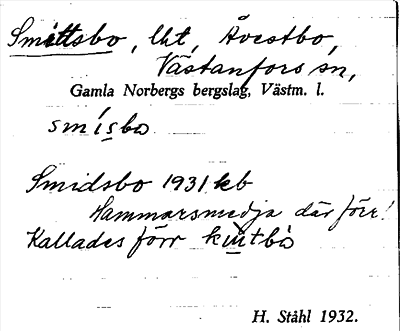 Smittsbo, lht, Åvestbo,
Västanfors sn,
Gamla Norbergs bergslag, Västm. l.
smi̲sbo
Smidsbo 1931 kb
Hammarsmedja där förr!
Kallades förr
H. Ståhl 1932.